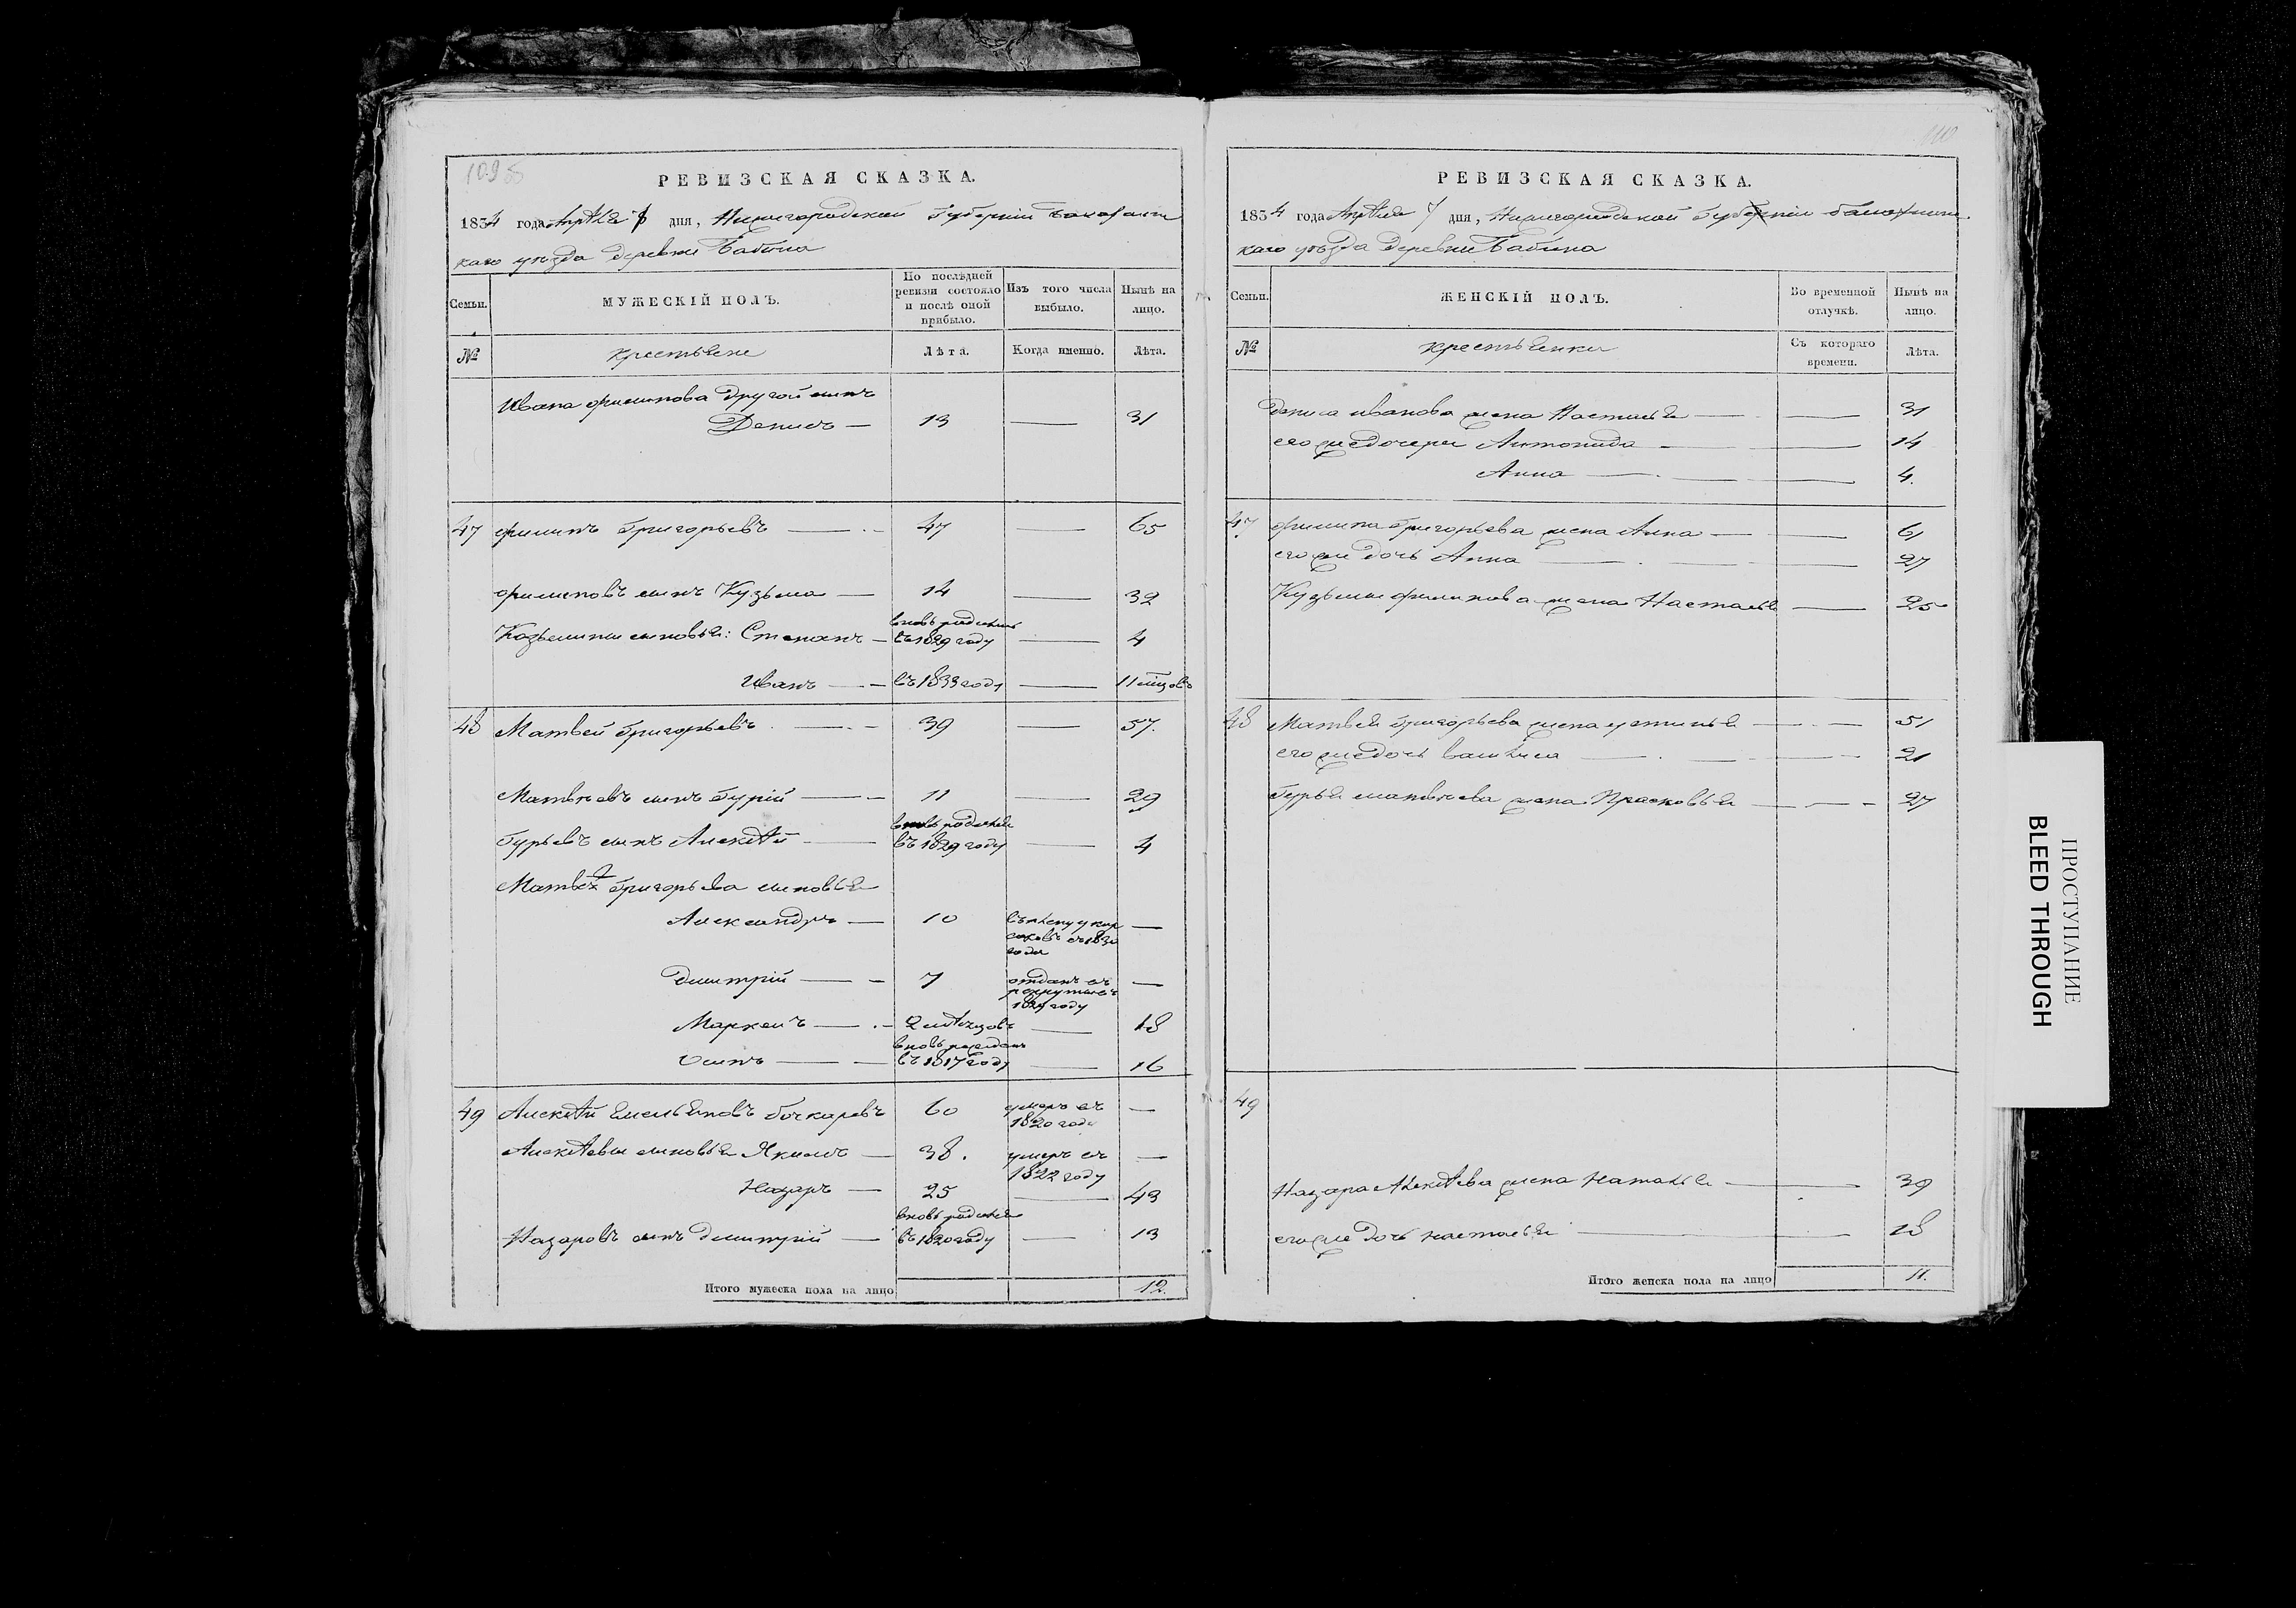 РЕВИЗСКАЯ СКАЗКА.
1834 года Апреля 7 дня, Нижегородской губернии Балахнинс
каго уѣзда деревни Бабина
Семьи.
МУЖЕСКІЙ ПОЛЪ.
По послѣдней ревизіи состояло и послѣ оной прибыло.
Изъ того числа выбыло.
Нынѣ на лицо.
№
крестьяне
Лѣта.
Когда именно.
Лѣта.
Ивана Филипова другой сынъ
Денисъ — 13 — 31
47 Филипъ Григорьевъ — 47 — 65
Филиповъ сынъ Кузьма — 14 — 32
Козьмины сыновья: Степанъ — вновь рожденъ въ 1829 году — 4
Иванъ — въ 1833 году — 11 мѣцовъ
48 Матвей Григорьевъ — 39 — 57.
Матвѣевъ сынъ Гурій — 11 — 29
Гурьевъ сынъ Алексѣй — вновь рожденъ въ 1829 году — 4
Матвея Григорьева сыновья
Александръ — 10 1830 года —
Дмитрій — 7 отданъ въ рекруты въ году —
Маркелъ — 2 мѣсяцовъ — 18
Осипъ — вновь рожденъ въ 1817 году — 16
49 Алексѣй Емельяновъ Бочкаревъ 60 умеръ въ 1820 году —
Алексѣевы сыновья Якимъ — 38. умеръ въ 1822 году —
Назаръ — 25 — 43
Назаровъ сынъ Дмитрій — вновь рожденъ въ 1820 году — 13
Итого мужеска пола на лицо 12.
РЕВИЗСКАЯ СКАЗКА.
1834 года Апреля 7 дня, Нижегородской губерніи Балахнинс
каго уѣзда деревни Бабина
Семьи.
ЖЕНСКІЙ ПОЛЪ.
Во временной отлучкѣ.
Нынѣ на лицо.
№
крестьянки
Съ котораго времени.
Лѣта.
Дениса Иванова жена Настасья — — 31
его же дочери Антонида — — 14
Анна — — 4.
47 Филипа Григорьева жена Анна — — 61
его же дочь Анна — — 27
Кузьмы Филипова жена Настасья — 25
48 Матвея Григорьева жена Устинья — — 51
его же дочь Василиса — — 21
Гурья Матвѣева жена Прасковья — — 27
49
Назара Алексѣева жена Наталья — 39
его же дочь Настасья — — 18
Итого женска пола на лицо 11.
ПРОСТУПАНИЕ
BLEED THROUGH